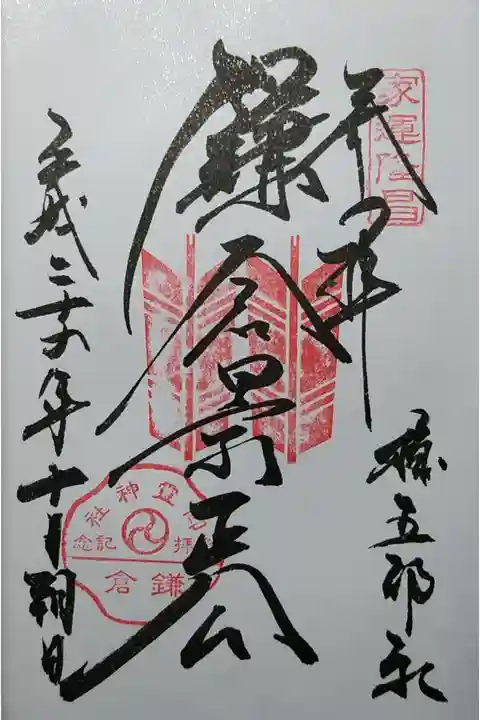 家運隆昌
奉拝
権五郎社
鎌倉景正公
平成二十六年十月朔日
御霊神社
参拝記念
鎌倉